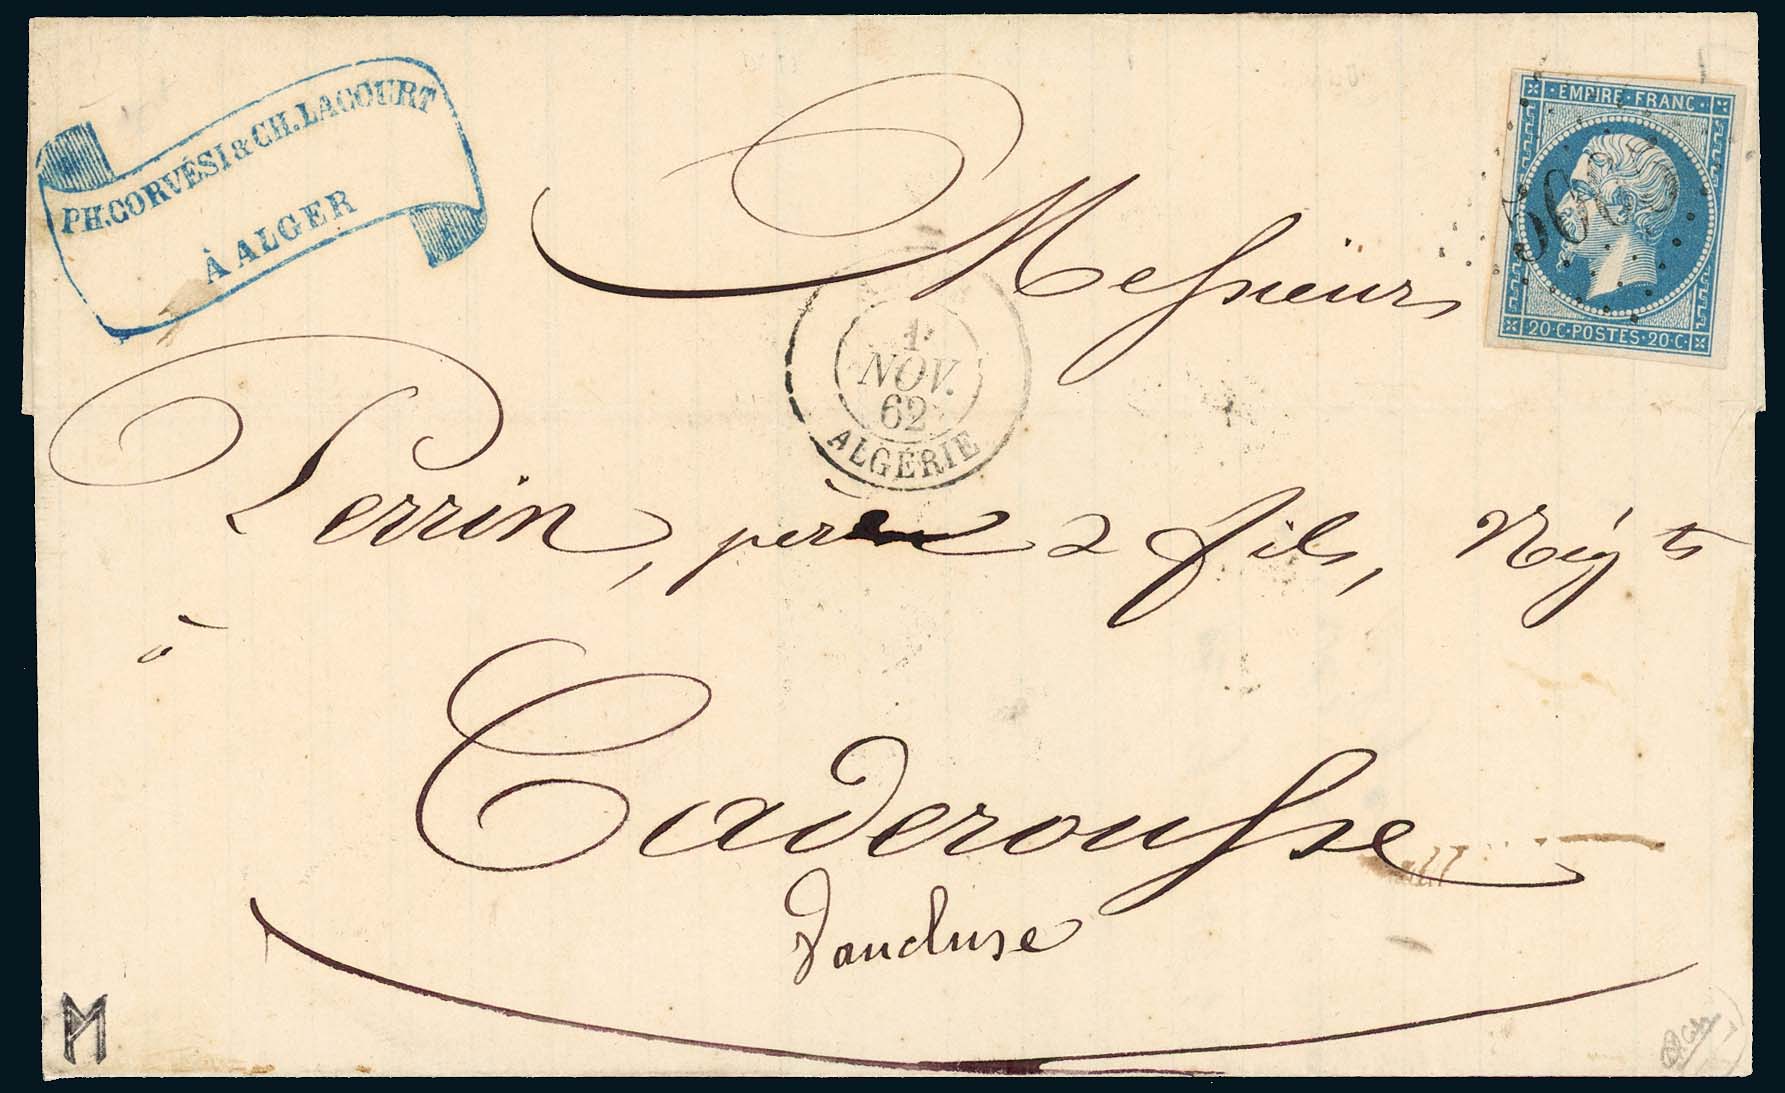 PH. CORVÉSI & CH. LACOURT
À ALGER
EMPIRE · FRANC
20 · C · POSTES · 20 · C ·
Messieurs
1
NOV.
62
ALGÉRIE
Perrin, père & fils, Nég.ts
à
Caderousse
Vaucluse
M